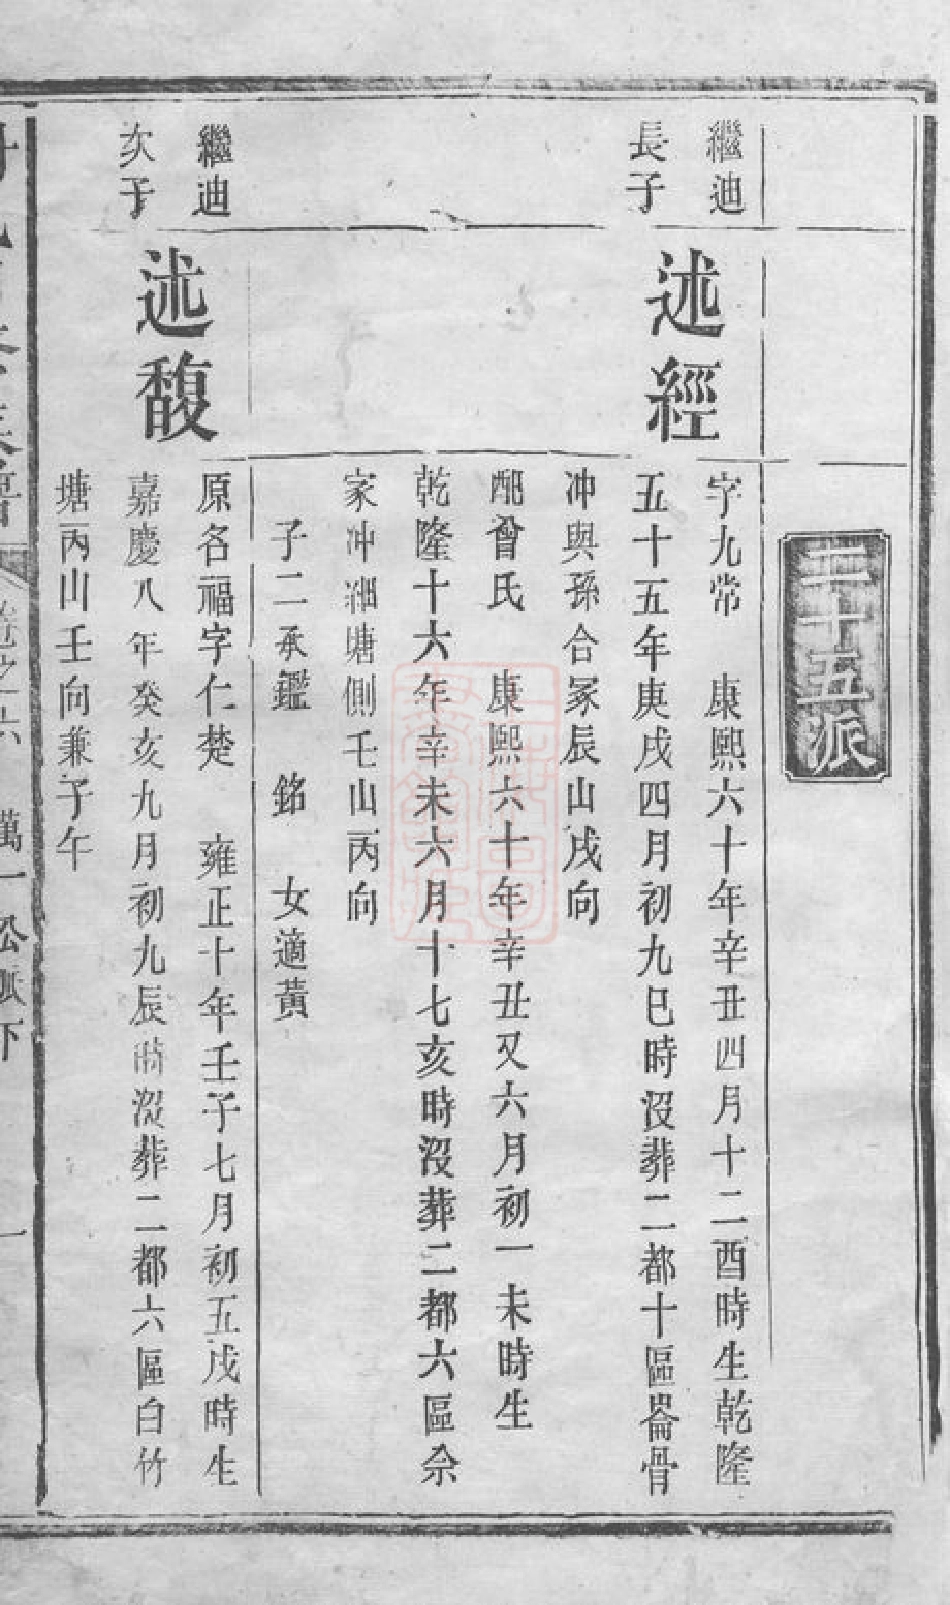 二十五派
繼迪
長子
述經
字九常　康熙六十年辛丑四月十二酉時生乾隆
五十五年庚戌四月初九巳時沒葬二都十區崙骨
冲與孫合冢辰山戌向
配曾氏　康熙六十年辛丑又六月初一未時生
乾隆十六年辛未六月十七亥時沒葬二都六區佘
家冲塘側壬山丙向
子二承鑑　銘　女適黃
繼迪
次子
述馥
原名福字仁楚　雍正十年壬子七月初五戌時生
嘉慶八年癸亥九月初九辰時沒葬二都六區白竹
塘丙山壬向兼子午
卷之六　萬一公派下　一